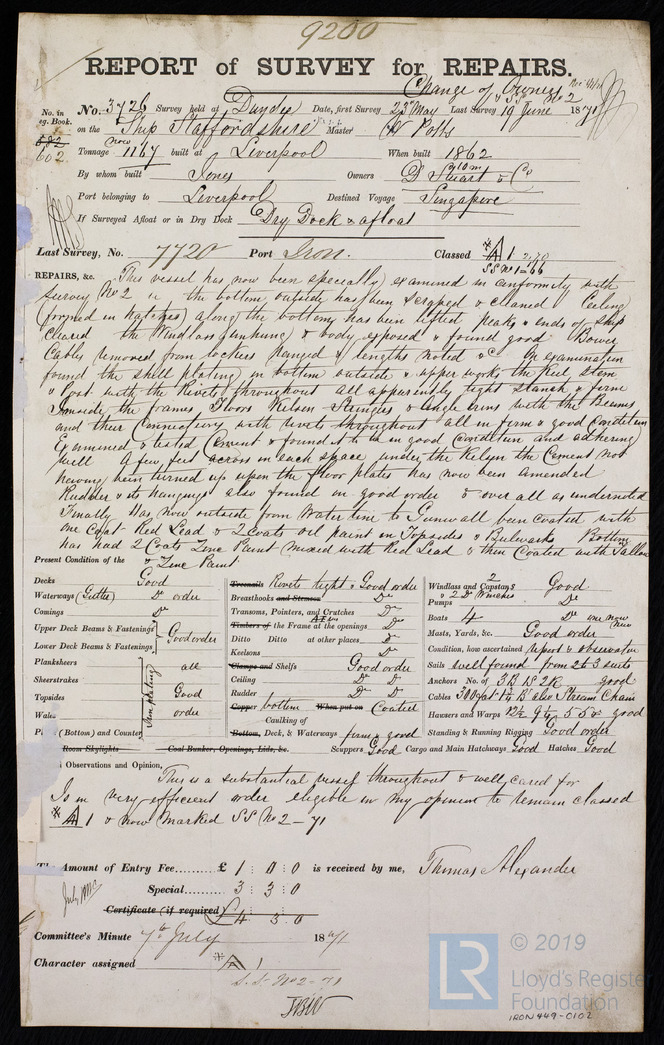 9200
REPORT of SURVEY for REPAIRS.
Change of Owners
& SS No 2
No. in Reg. Book.
682
602
No. 3726 Survey held at Dundee Date, first Survey 23 May Last Survey 19 June 1871
on the Ship Staffordshire Master W Potts
Tonnage now 1167 built at Liverpool When built 1862
By whom built Jones Owners D Stuart & Co
Port belonging to Liverpool Destined Voyage Singapore
If Surveyed Afloat or in Dry Dock Dry Dock & afloat
Last Survey, No. 7720 Port Iron. Classed A 1
SS No 1-66
REPAIRS, &c. This vessel has now been specially examined in conformity with
Survey No 2 the bottom outside has been scraped & cleaned Ceiling
(formed in hatches) along the bottom has been lifted peaks & ends of ship
cleared the Windlass (unhung) & body exposed & found good Bower
Cables removed from lockers ranged & lengths noted &c On examination
found the shell plating in bottom outside & upper works the Keel Stem
& Post with the Rivets throughout all apparently tight stanch & firm
Inside the frames Floors Kelson Stringers & angle irons with the Beams
and their Connections with rivets throughout all in firm & good condition
Examined & tested Cement & found it to be in good condition and adhering
well A few feet across in each space under the Kelson the Cement not
having been turned up upon the floor plates has now been amended
Rudder & its hangings also found in good order & over all as undernoted
Finally Has now outside from Water line to Gunwall been coated with
one Coat Red Lead & 2 Coats oil paint on Topsides & Bulwarks Bottom
has had 2 Coats Zinc Paint mixed with Red Lead & then Coated with Tallow
& Zinc Paint
Present Condition of the
Decks Good
Waterways (Gutter) Do order
Comings Do
Upper Deck Beams & Fastenings
Lower Deck Beams & Fastenings
Good order
Planksheers
Sheerstrakes
Topsides
Wales
(Bottom) and Counter
Iron plating
all
Good
order
Room Skylights Coal Bunker, Openings, Lids, &c.
Treenails Rivets tight & Good order
Breasthooks and Stemson Do
Transoms, Pointers, and Crutches Do
Timbers of the Frame at the openings Do
Ditto Ditto at other places Do
Keelsons Do
Clamps and Shelfs Good order
Ceiling Do Do
Rudder Do Do
Copper bottom When put on Coated
Caulking of
Bottom, Deck, & Waterways firm & good
Scuppers Good Cargo and Main Hatchways Good Hatches Good
Windlass and 2 Capstans Good
& 2 Do Winches
Pumps Do
Boats 4 Do one now New
Masts, Yards, &c. Good order
Condition, how ascertained report & observation
Sails well found from 2 to 3 suits
Anchors No. of 3B 1S 2K good
Cables 300 fat 1¾ Bo also Stream Chain
Hausers and Warps good
Standing & Running Rigging Good order
Observations and Opinion,
This is a substantial vessel throughout & well cared for
Is in very efficient order eligible in my opinion to remain classed
A 1 & now Marked SS No 2-71
Amount of Entry Fee......... £ 1 : 0 : 0 is received by me, Thomas Alexander
Special......... 3 : 3 : 0
Certificate (if required) £4 3. 0
Committee's Minute 7th July 1871
Character assigned A 1
S.S. No 2-71
LR
© 2019
Lloyd's Register
Foundation
IRON 449-0102